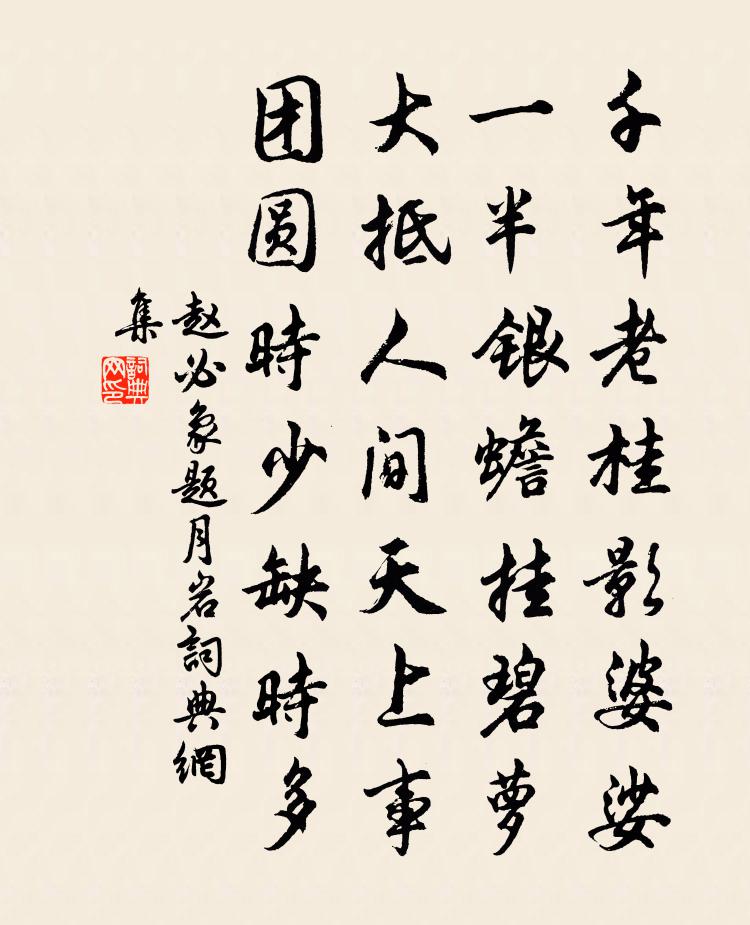 千年老桂影婆娑
一半银蟾挂碧萝
大抵人间天上事
团圆時少缺時多
赵必象题月岩詞典網
集
詞典
网印